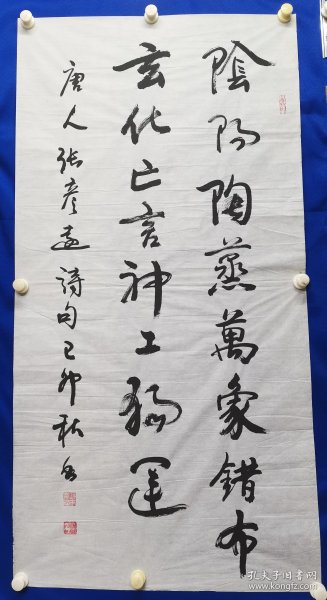 陰陽陶蒸萬象錯布
玄化亡言神工獨運
唐人張彥遠詩句己卯秋
孔夫子旧书网
www.kongfz.com